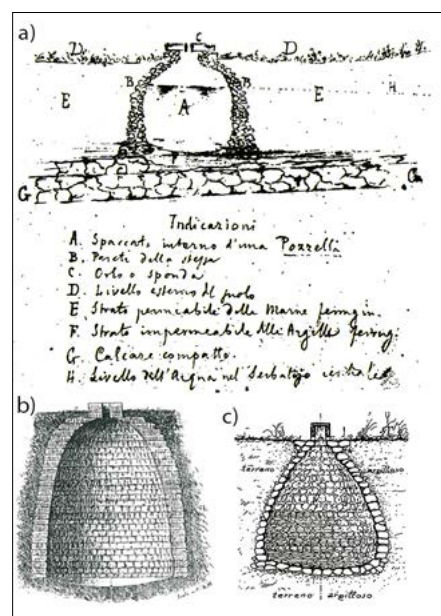 a)
D C D
B B
E A E H
G G
Indicazioni
A. Spaccato interno d'una Pozzella
B. Pareti della stessa
C. Orlo o sponda
D. Livello esterno del suolo
E Strato permeabile delle Marne ferrugin.
F. Strato impermeabile delle Argille ferrug.
G. Calcare compatto.
H. Livello dell'Acqua nel Serbatojo
b) c)
terreno argilloso
terreno argilloso